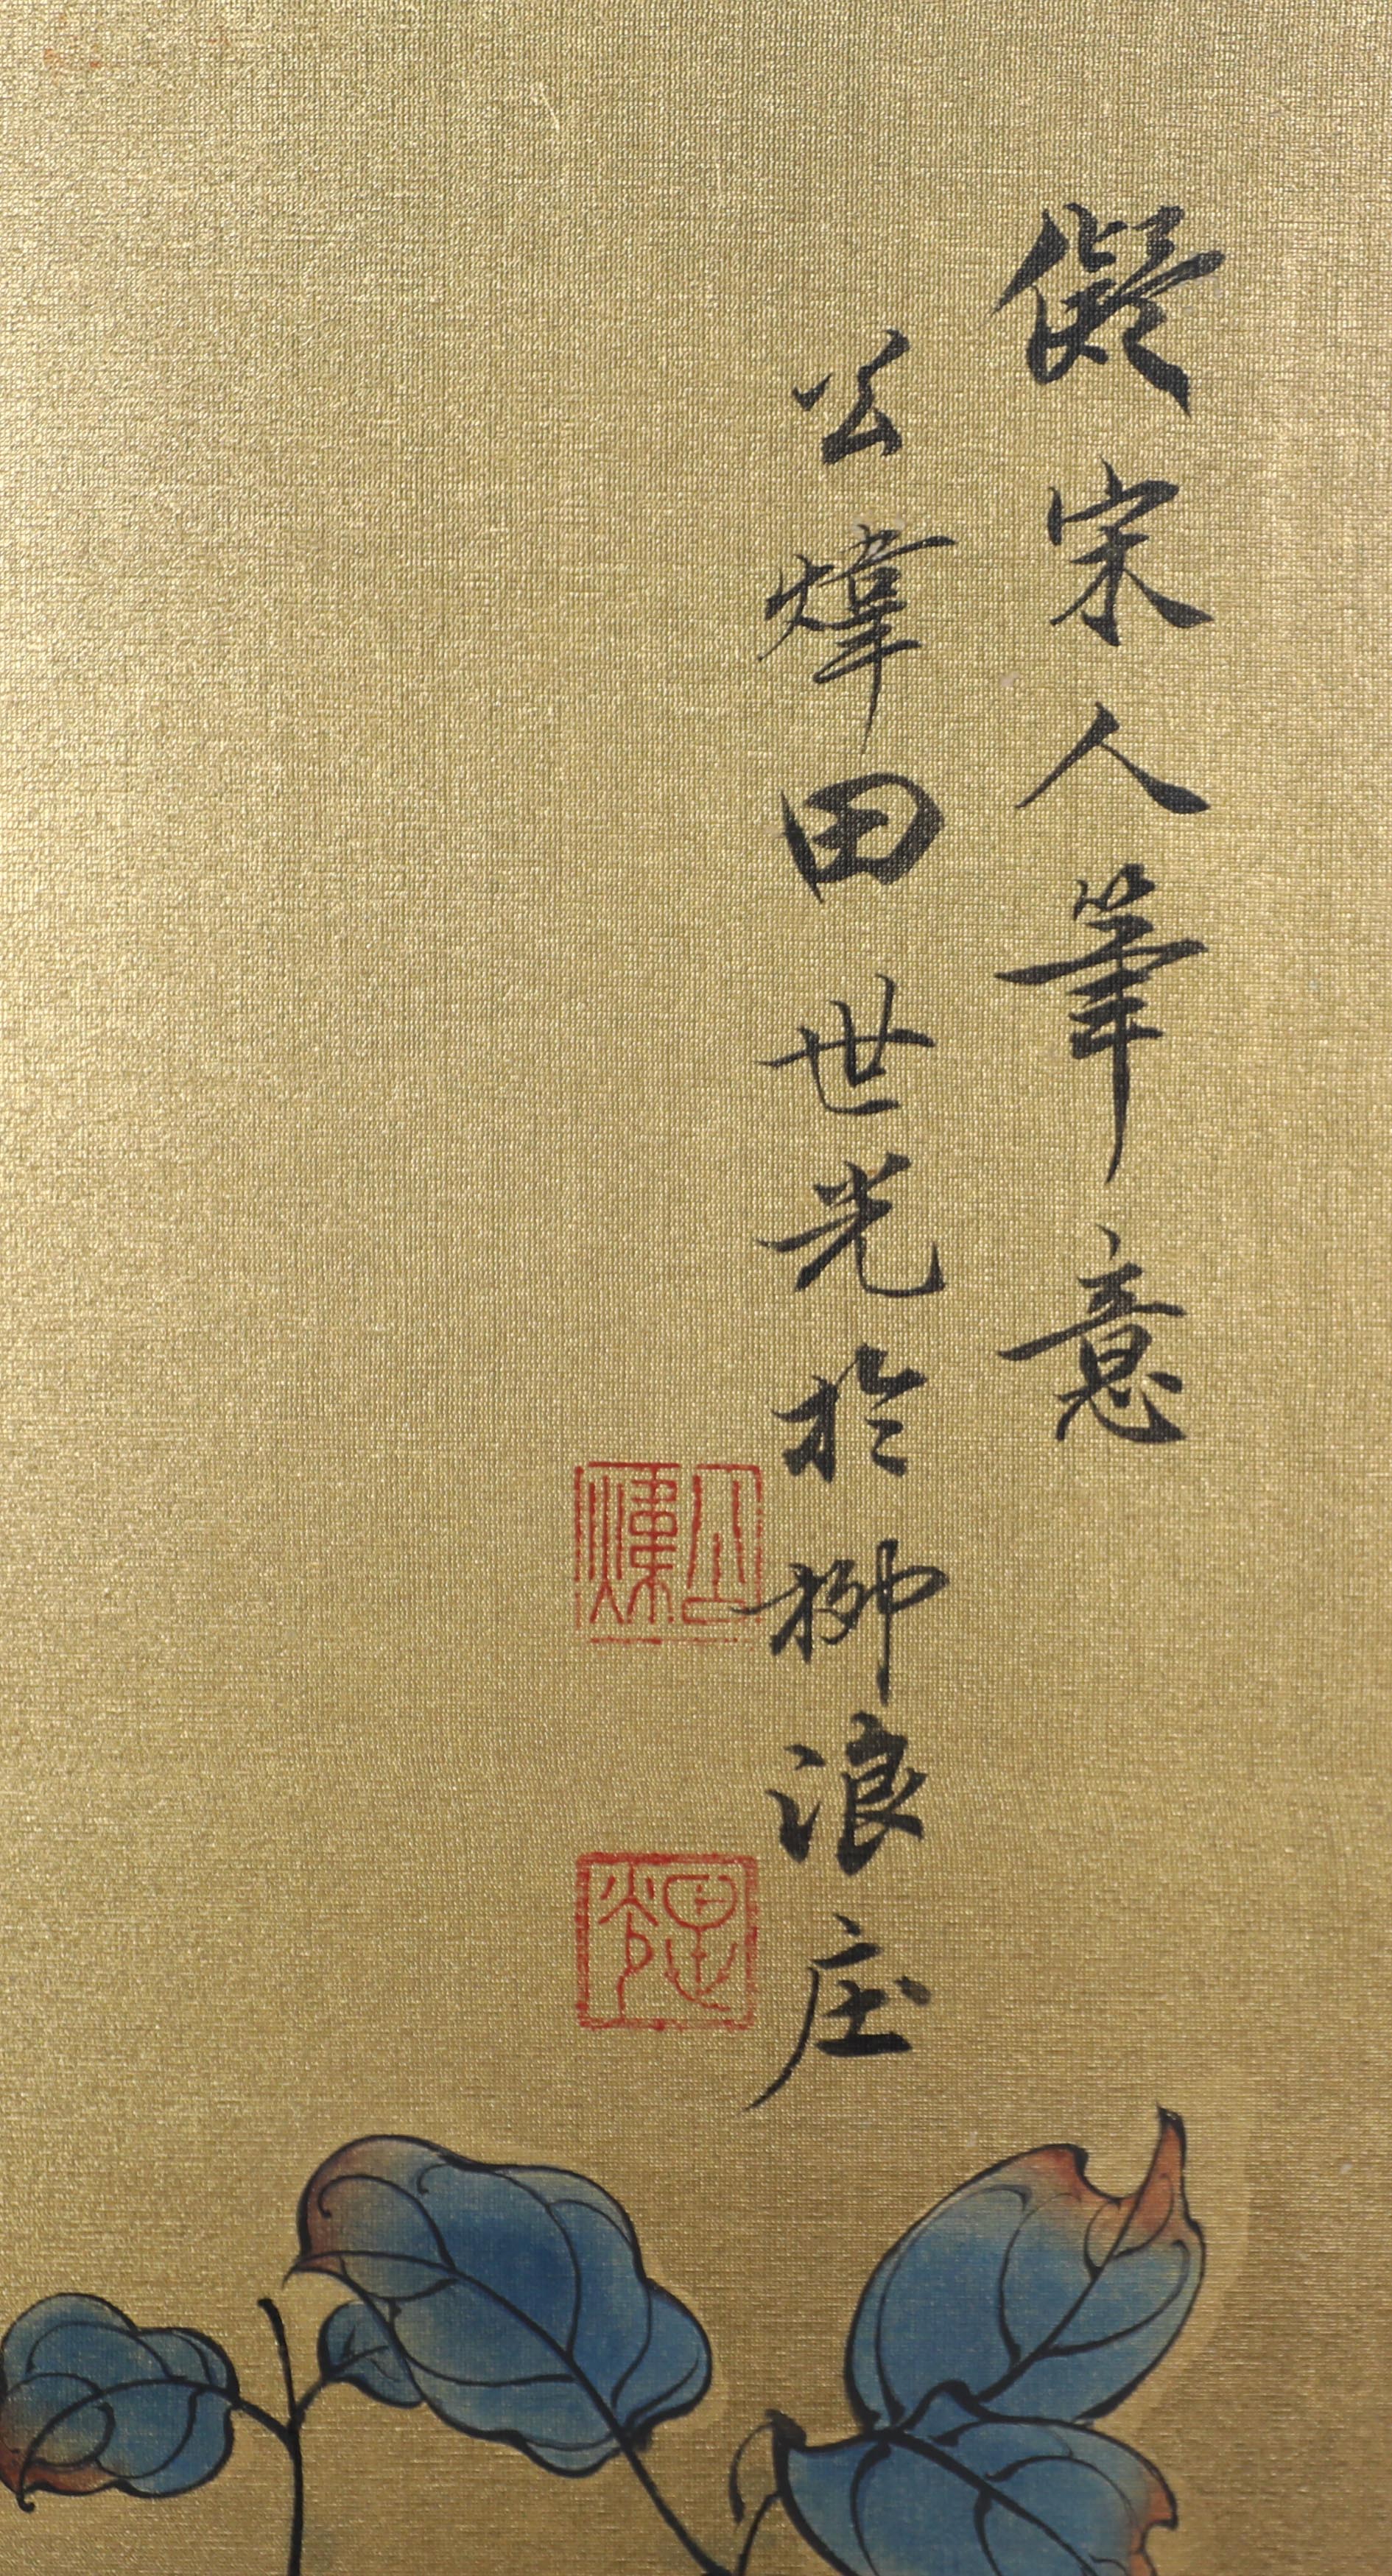 儗宋人筆意
公煒田世光於柳浪庄
公煒